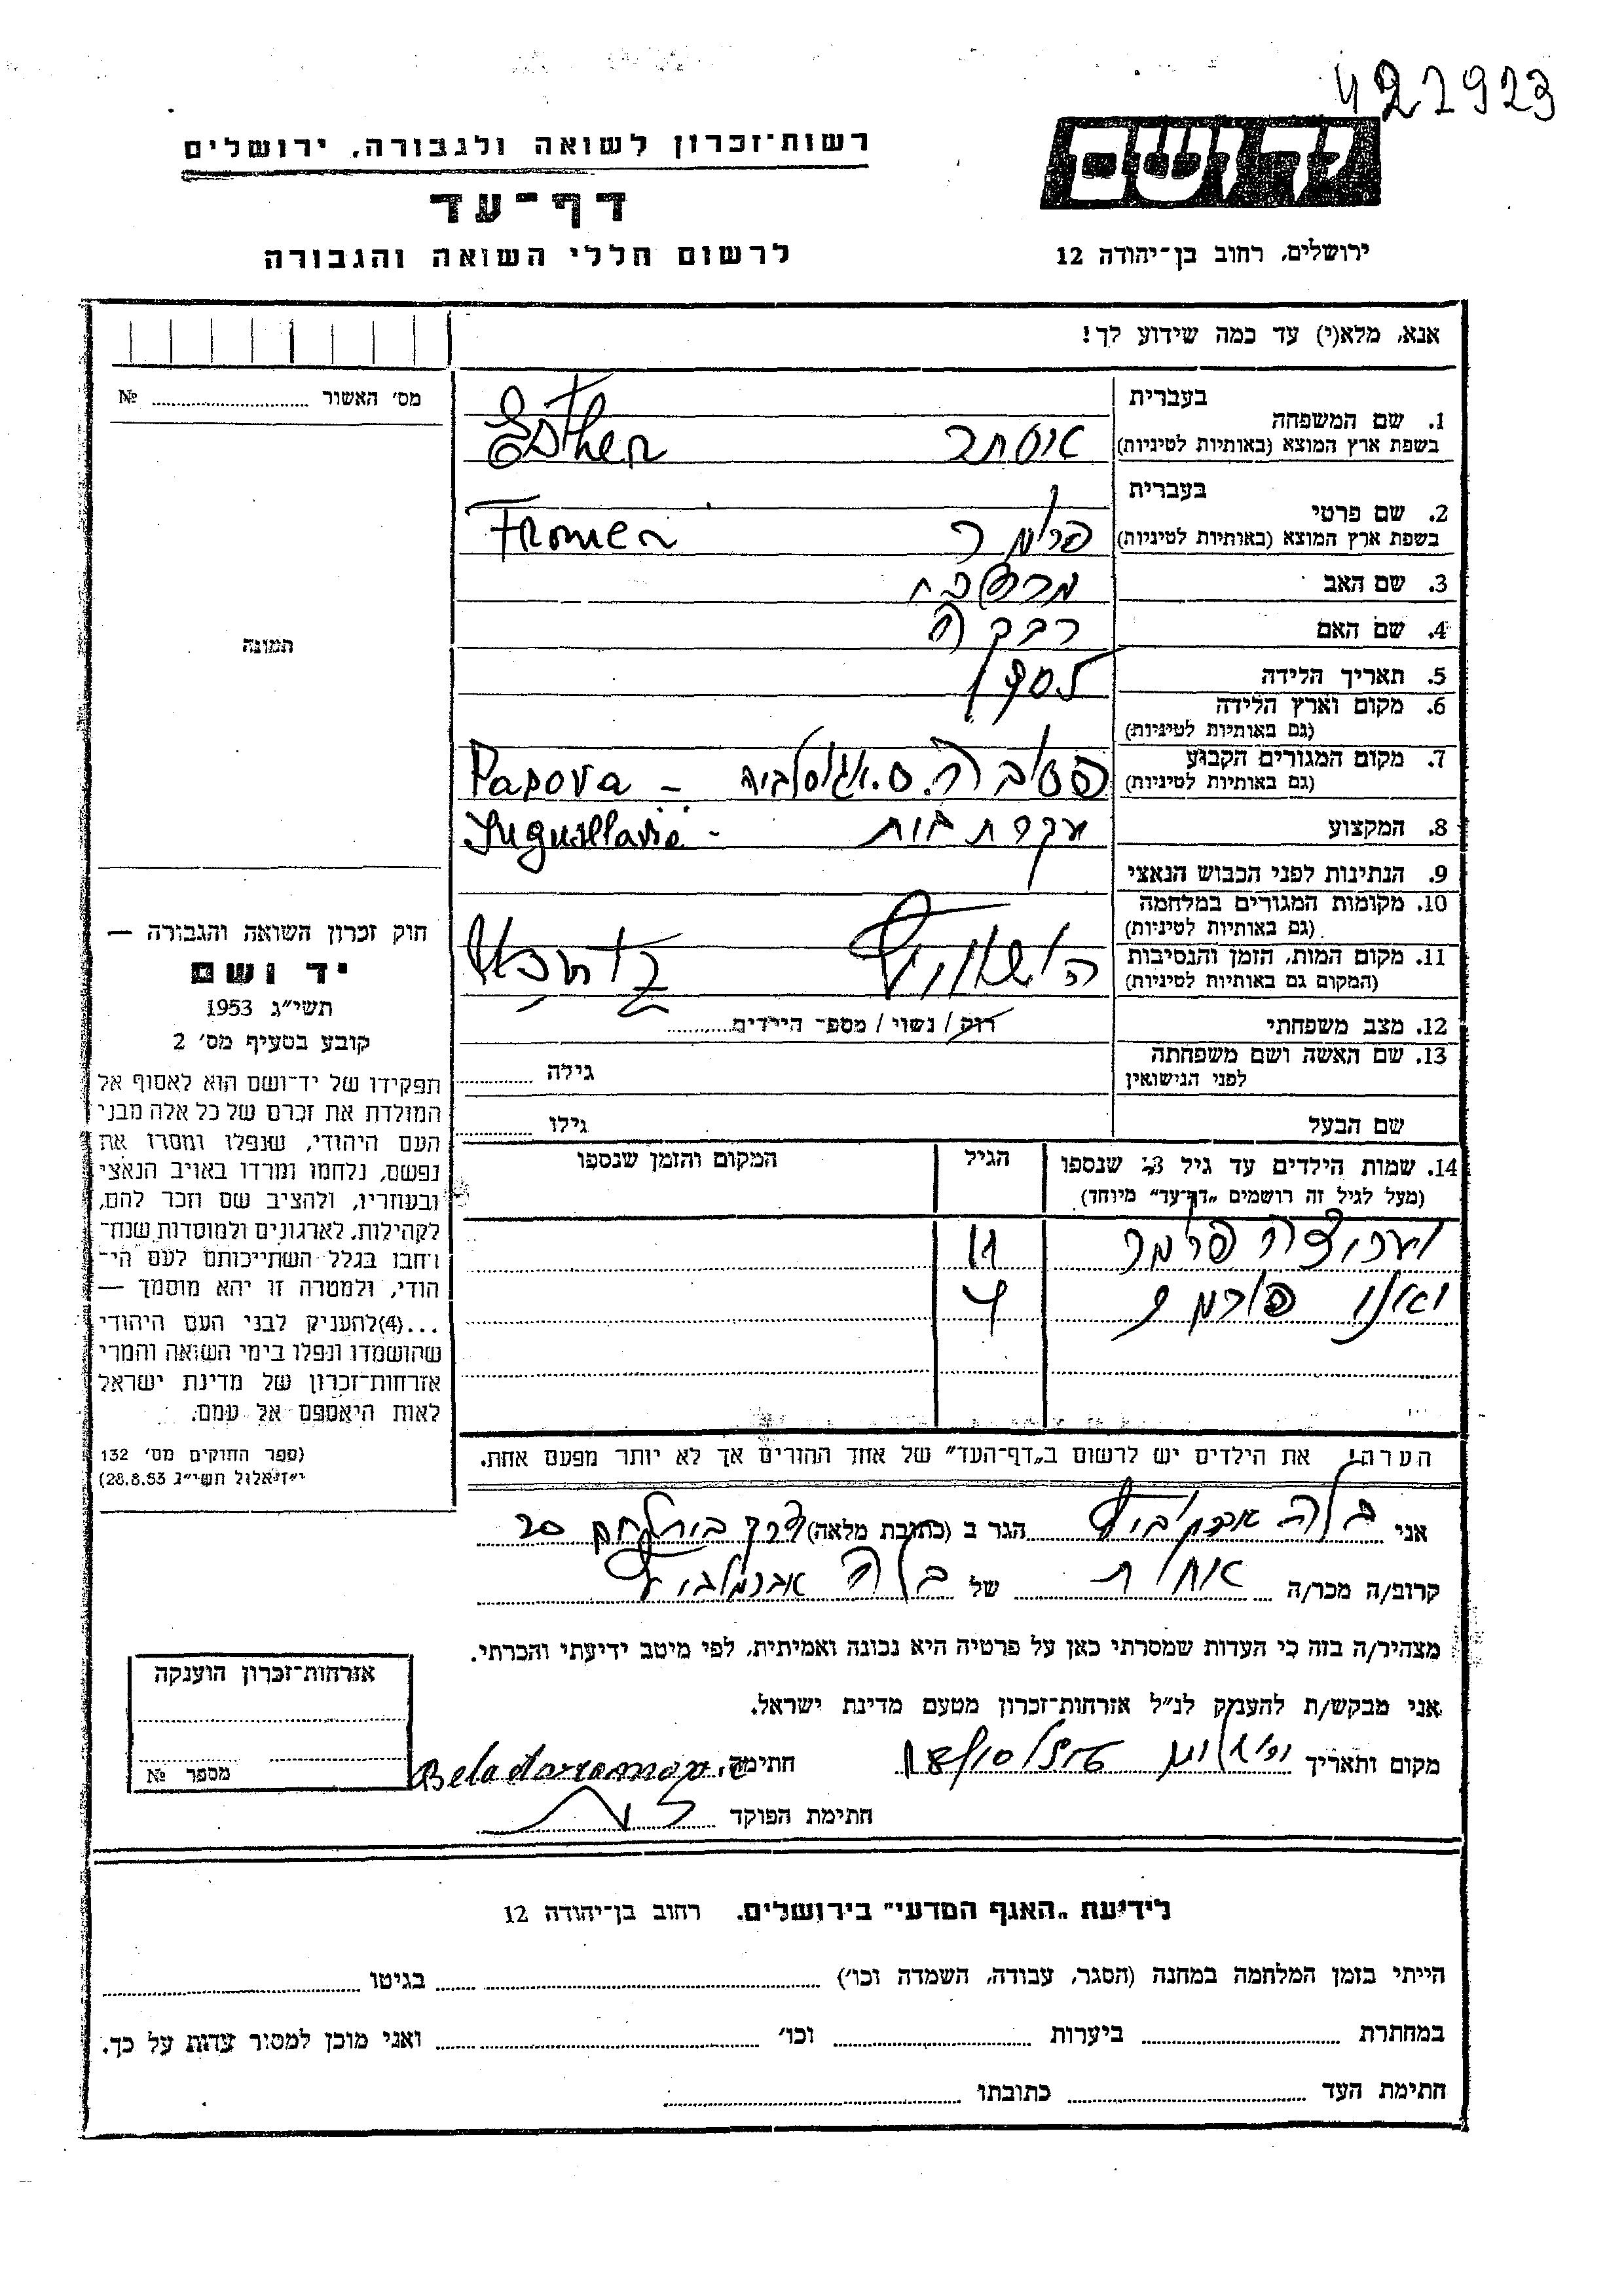 422923
רשות־זכרון לשואה ולגבורה, ירושלים
דף־עד
לרשום חללי השואה והגבורה
יד ושם
ירושלים, רחוב בן־יהודה 12
אנא, מלא(י) עד כמה שידוע לך!
מס׳ האשור № 
תמונה
בעברית
1. שם המשפחה
בשפת ארץ המוצא (באותיות לטיניות)
אסתר Esther
בעברית
2. שם פרטי
בשפת ארץ המוצא (באותיות לטיניות)
Fromer
3. שם האב
4. שם האם רבקה
5. תאריך הלידה
6. מקום וארץ הלידה
(גם באותיות לטיניות)
7. מקום המגורים הקבוע
(גם באותיות לטיניות)
8. המקצוע עקרת בית
9. הנתינות לפני הכבוש הנאצי
10. מקומות המגורים במלחמה
(גם באותיות לטיניות)
11. מקום המות, הזמן והנסיבות
(המקום גם באותיות לטיניות)
12. מצב משפחתי רוק / נשוי / מספר הילדים
13. שם האשה ושם משפחתה
לפני הנישואין
גילה
שם הבעל גילו
14. שמות הילדים עד גיל 18 שנספו
(מעל לגיל זה רושמים „דף־עד” מיוחד)
הגיל
המקום והזמן שנספו
11
4
הערה! את הילדים יש לרשום ב„דף־העד” של אחד ההורים אך לא יותר מפעם אחת.
חוק זכרון השואה והגבורה —
יד ושם
תשי״ג 1953
קובע בסעיף מס׳ 2
תפקידו של יד־ושם הוא לאסוף אל
המולדת את זכרם של כל אלה מבני
העם היהודי, שנפלו ומסרו את
נפשם, נלחמו ומרדו באויב הנאצי
ובעוזריו, ולהציב שם וזכר להם,
לקהילות, לארגונים ולמוסדות שנח־
רחבו בגלל השתייכותם לעם הי־
הודי, ולמטרה זו יהא מוסמך —
...(4)להעניק לבני העם היהודי
שהושמדו ונפלו בימי השואה והמרי
אזרחות־זכרון של מדינת ישראל
לאות היאספם אל עמם.
(ספר החוקים מס׳ 132
י״ז אלול תשי״ג 28.8.53)
אני בלה הגר ב (כתובת מלאה) דרך בית לחם 20
קרוב/ה מכר/ה אחות של בלה
מצהיר/ה בזה כי העדות שמסרתי כאן על פרטיה היא נכונה ואמיתית, לפי מיטב ידיעתי והכרתי.
אני מבקש/ת להעניק לנ״ל אזרחות־זכרון מטעם מדינת ישראל.
מקום ותאריך חתימה
חתימת הפוקד
אזרחות־זכרון הוענקה
מספר №
לידיעת „האגף המדעי” בירושלים, רחוב בן־יהודה 12
הייתי בזמן המלחמה במחנה (הסגר, עבודה, השמדה וכו׳) בגיטו
במחתרת ביערות וכו׳ ואני מוכן למסור עדות על כך.
חתימת העד כתובתו